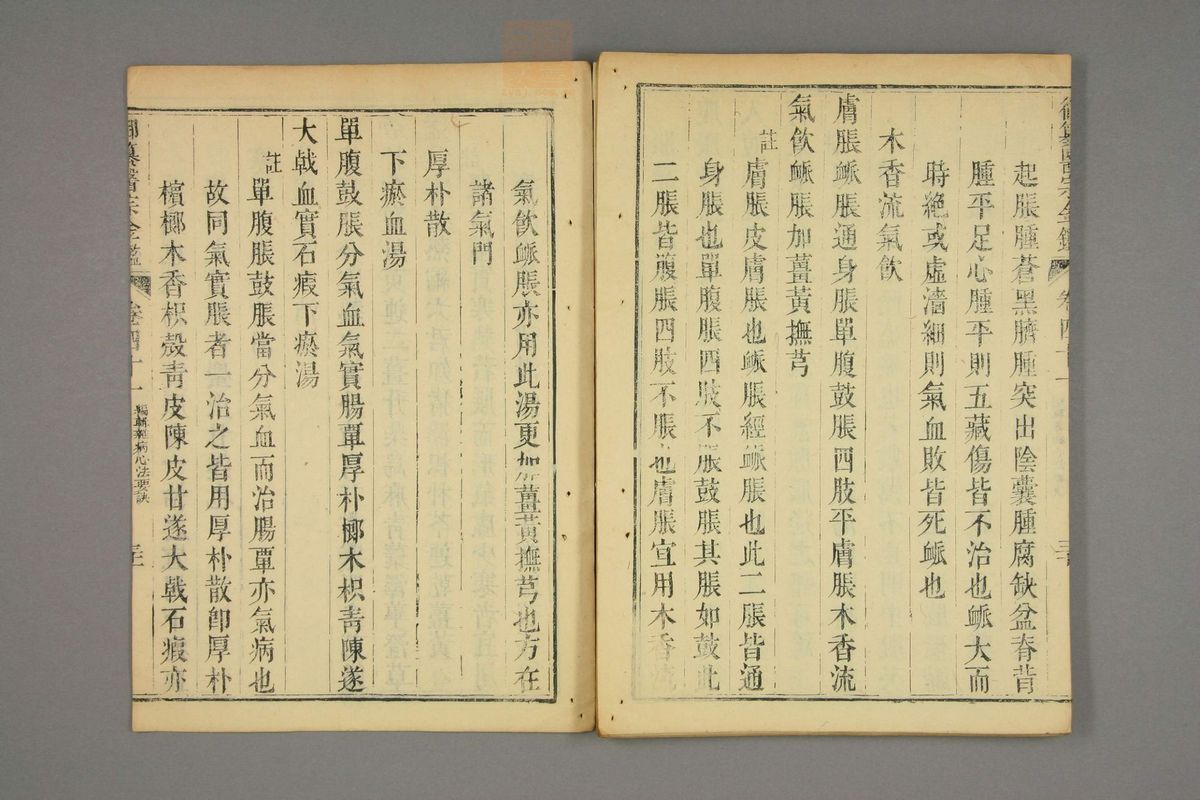 起脹腫蒼黑臍腫突出陰囊腫腐缺盆脊背
腫平足心腫平則五藏傷皆不治也䘑大而
時絶或虛濇細則氣血敗皆死䘑也
木香流氣飲
膚脹䘑脹通身脹單腹鼓脹四肢平膚脹木香流
氣飲䘑脹加薑黃撫芎
註膚脹皮膚脹也䘑脹經䘑脹也此二脹皆通
身脹也單腹脹四肢不脹鼓脹其脹如鼓此
二脹皆腹脹四肢不脹也膚脹宜用木香流
卷四十一
氣飲䘑脹亦用此湯更加薑黃撫芎也方在
諸氣門
厚朴散
下瘀血湯
單腹鼓脹分氣血氣實腸覃厚朴榔木枳靑陳遂
大戟血實石瘕下瘀湯
註單腹脹鼓脹當分氣血而治腸覃亦氣病也
故同氣實脹者一治之皆用厚朴散卽厚朴
檳榔木香枳殼靑皮陳皮甘遂大戟石瘕亦
御纂醫宗金鑑 卷四十一 編輯雜病心法要訣